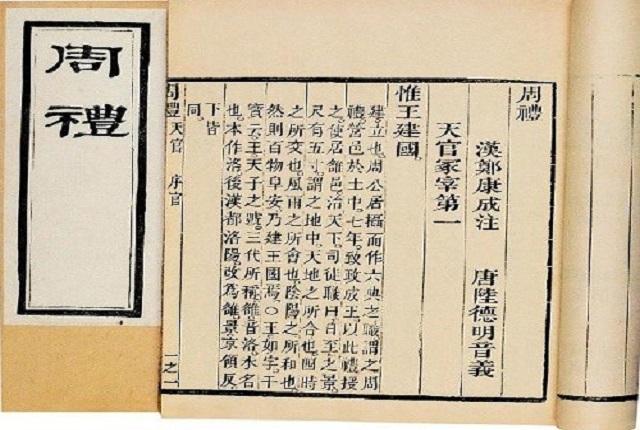 周禮
周禮
漢鄭康成注 唐陸德明音義
天官冢宰第一
惟王建國。
建立也。周公居攝而作六典之職。謂之周
禮。營邑於土中。七年。致政成王。以此禮授
之。使居雒邑。治天下。司徒職曰。日至之景
尺有五寸。謂之地中。天地之所合也。四時
之所交也。風雨之所會也。陰陽之所和也。
然則百物阜安。乃建王國焉。○王如字。干
寶云。王天子之號。三代所稱。雒音洛。水名
也。本作洛。後漢都洛陽。改為雒。景京領反
下皆
同。
周禮 天官 序官 一之一